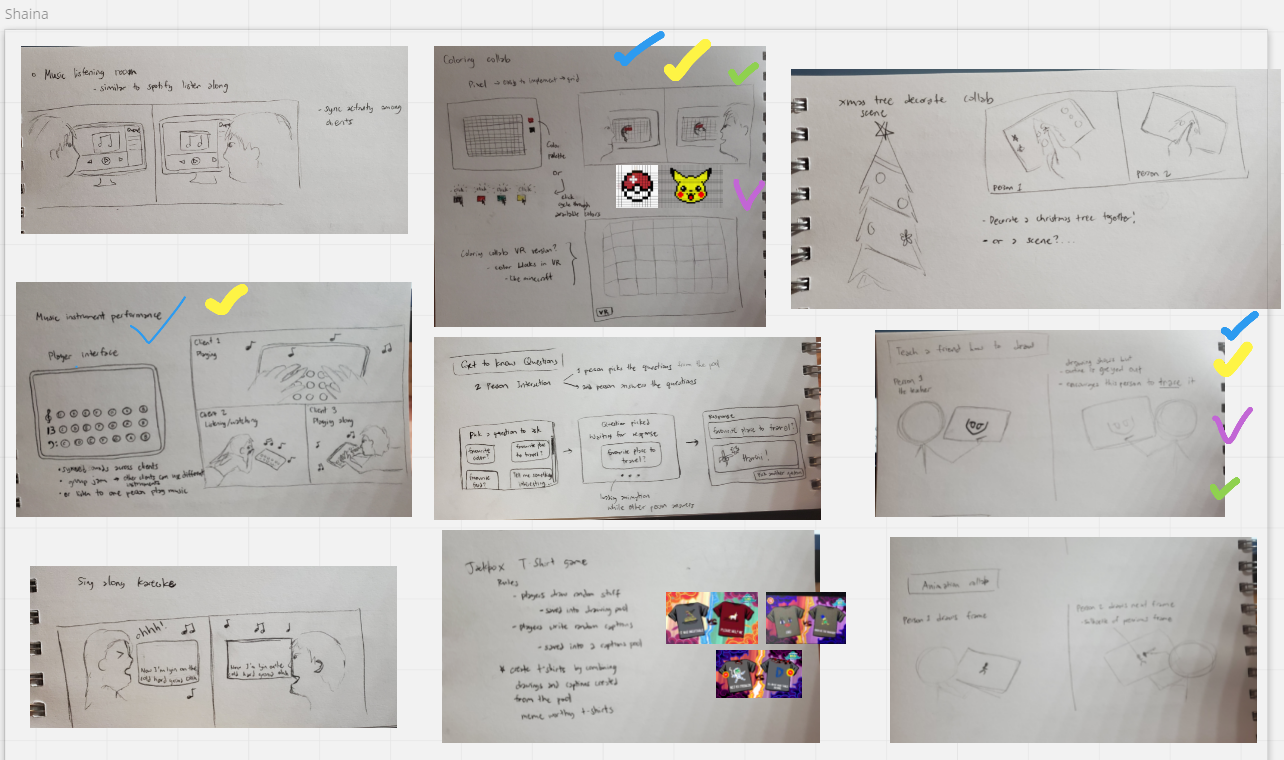 Shaina
Music listening room
- similar to spotify listen along
- sync activity among
clients
Coloring collab
Pixel → easy to implement → grid
Color
palette
or
click
cycle through
available colors
Coloring collab VR version?
- color blocks in VR
- like minecraft
VR
xmas tree decorate collab
scene
Person 1
Person 2
- Decorate a christmas tree together!
- or a scene?...
Music instrument performance
Player interface
Client 1
Playing
Client 2
Listening/watching
Client 3
Playing along
across clients
other clients can use different
instruments
- or listen to one person play music
Get to know Questions
2 Person Interaction
1 person picks the questions from the pool
2nd person answers the questions
Pick a question to ask
favorite
color?
favorite place
to travel?
favorite
food?
Tell me something
interesting...
Question picked
Waiting for response
favorite place to
travel?
loading animation
while other person answers
Response
favorite place to travel?
Hawaii!
Teach a friend how to draw
Person 1
the teacher
outline is greyed out
- encourages this person to trace it
Sing along Karaoke
ohhh!
Now I'm lyin on the
cold hard ground
Now I'm lyin on the
cold hard ground
Jackbox T Shirt game
Rules
- players draw random stuff
- saved into drawing pool
- Players write random captions
- saved into a captions pool
* create t-shirts by combining
drawings and captions created
from the pool
meme worthy t-shirts
Animation collab
Person 1 draws frame
Person 2 draws next frame
of previous frame